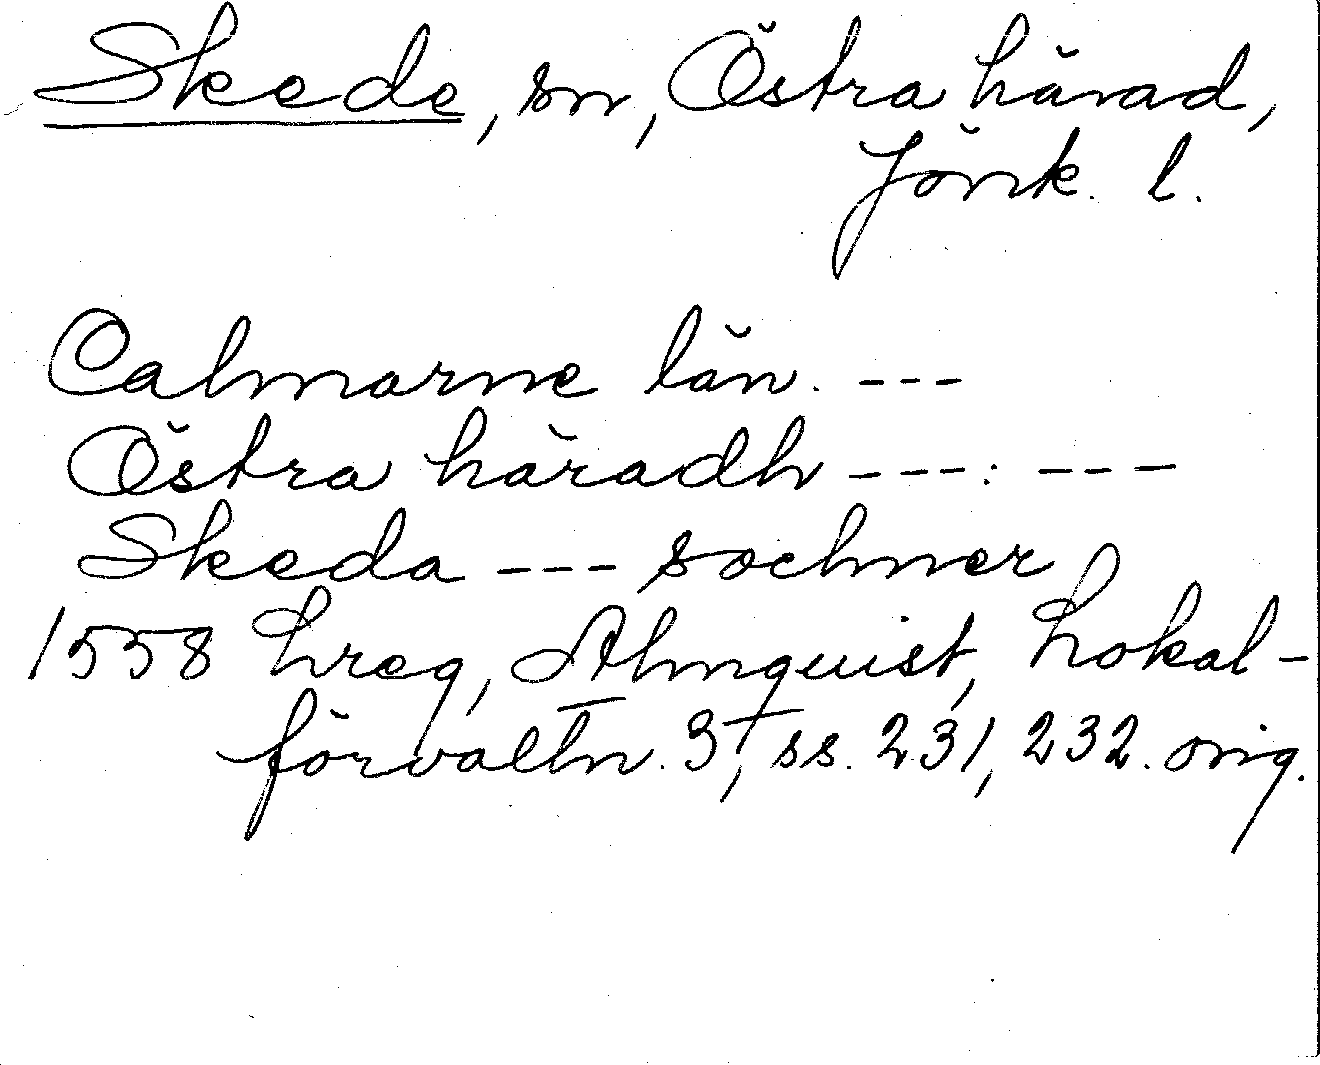 Skede, sn, Östra härad,
Jönk. l.
Calmarne län. ---
Östra häradh ---: ---
Skeda --- sochner
1558 hreg, Almquist, Lokal-
förvaltn. 3, ss. 231, 232. orig.